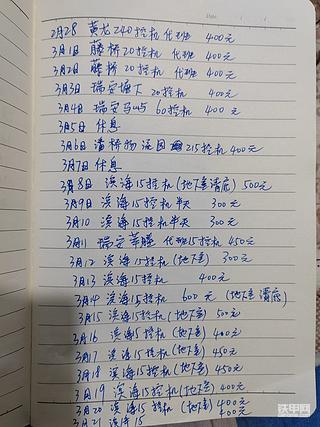 2月28 黄龙240挖机 代班 400元
3月1日 藤桥20挖机 代班 400元
3月2日 藤桥20挖机 代班 400元
3月3日 瑞安塘下 20挖机 400元
3月4日 瑞安马屿 60挖机 400元
3月5日 休息
3月6日 潘桥物流园 215挖机 400元
3月7日 休息
3月8日 滨海15挖机(地下室清底) 500元
3月9日 滨海15挖机半天 300元
3月10 滨海15挖机半天 300元
3月11 瑞安莘塍 代班15挖机 450元
3月12 滨海15挖机(地下室) 300元
3月13 滨海15挖机 400元
3月14 滨海15挖机 600元 (地下室清底)
3月15 滨海15挖机(地下室) 500元
3月16 滨海15挖机(地下室) 400元
3月17 滨海15挖机(地下室) 450元
3月18 滨海15挖机(地下室) 450元
3月19 滨海15挖机(地下室) 400元
3月20 滨海15挖机(地下室) 400元
3月21 滨海15 400元
铁甲网